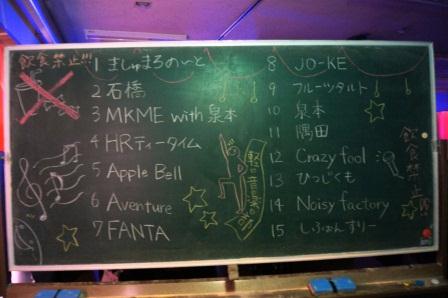 飲食禁止!!!
1 ましゅまろのーと
2 石橋
3 MKME with 泉本
4 HRティータイム
5 Apple Bell
6 Aventure
7 FANTA
8 JO-KE
9 フルーツタルト
10 泉本
11 隅田
12 Crazy fool
13 ひつじくも
14 Noisy factory
15 しふぉんすりー
軽音楽部
飲食禁止!!!